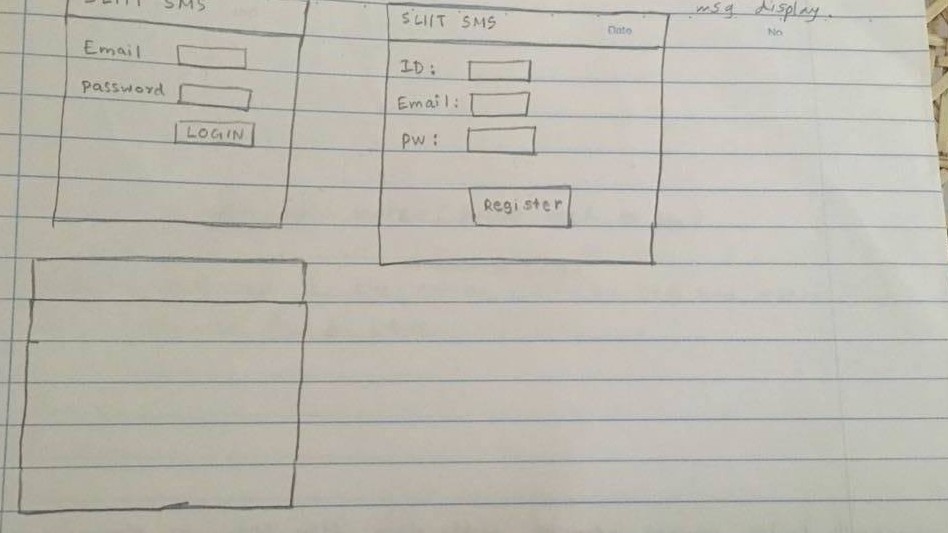 SLIIT SMS
Email
Password
LOGIN
SLIIT SMS
ID:
Email:
PW:
Register
msg display.
Date
No